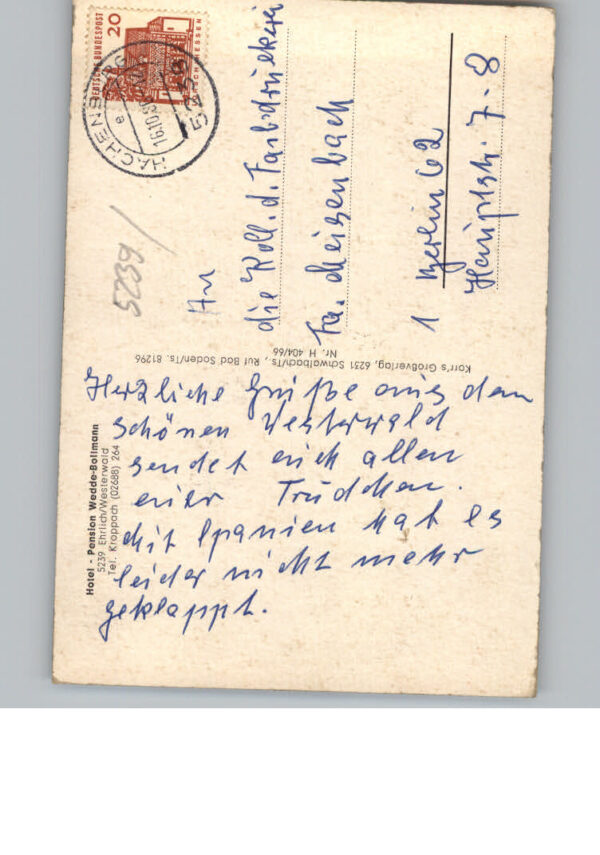 Herzliche Grüße aus dem
schönen Westerwald
sendet euch allen
euer Trudchen.
Mit Spanien hat es
leider nicht mehr
geklappt.
Hotel - Pension Wedde-Bollmann
5239 Ehrlich/Westerwald
Tel. Kroppach (02688) 264
Korr's Großverlag, 6231 Schwalbach/Ts., Ruf Bad Soden/Ts. 81296
Nr. H 404/66
5239/
DEUTSCHE BUNDESPOST
20
HACHENBURG
5238
e
16.10.
An
die Koll. d. Farbdruckerei
Fa. Meisenbach
1 Berlin 62
Hauptstr. 7-8